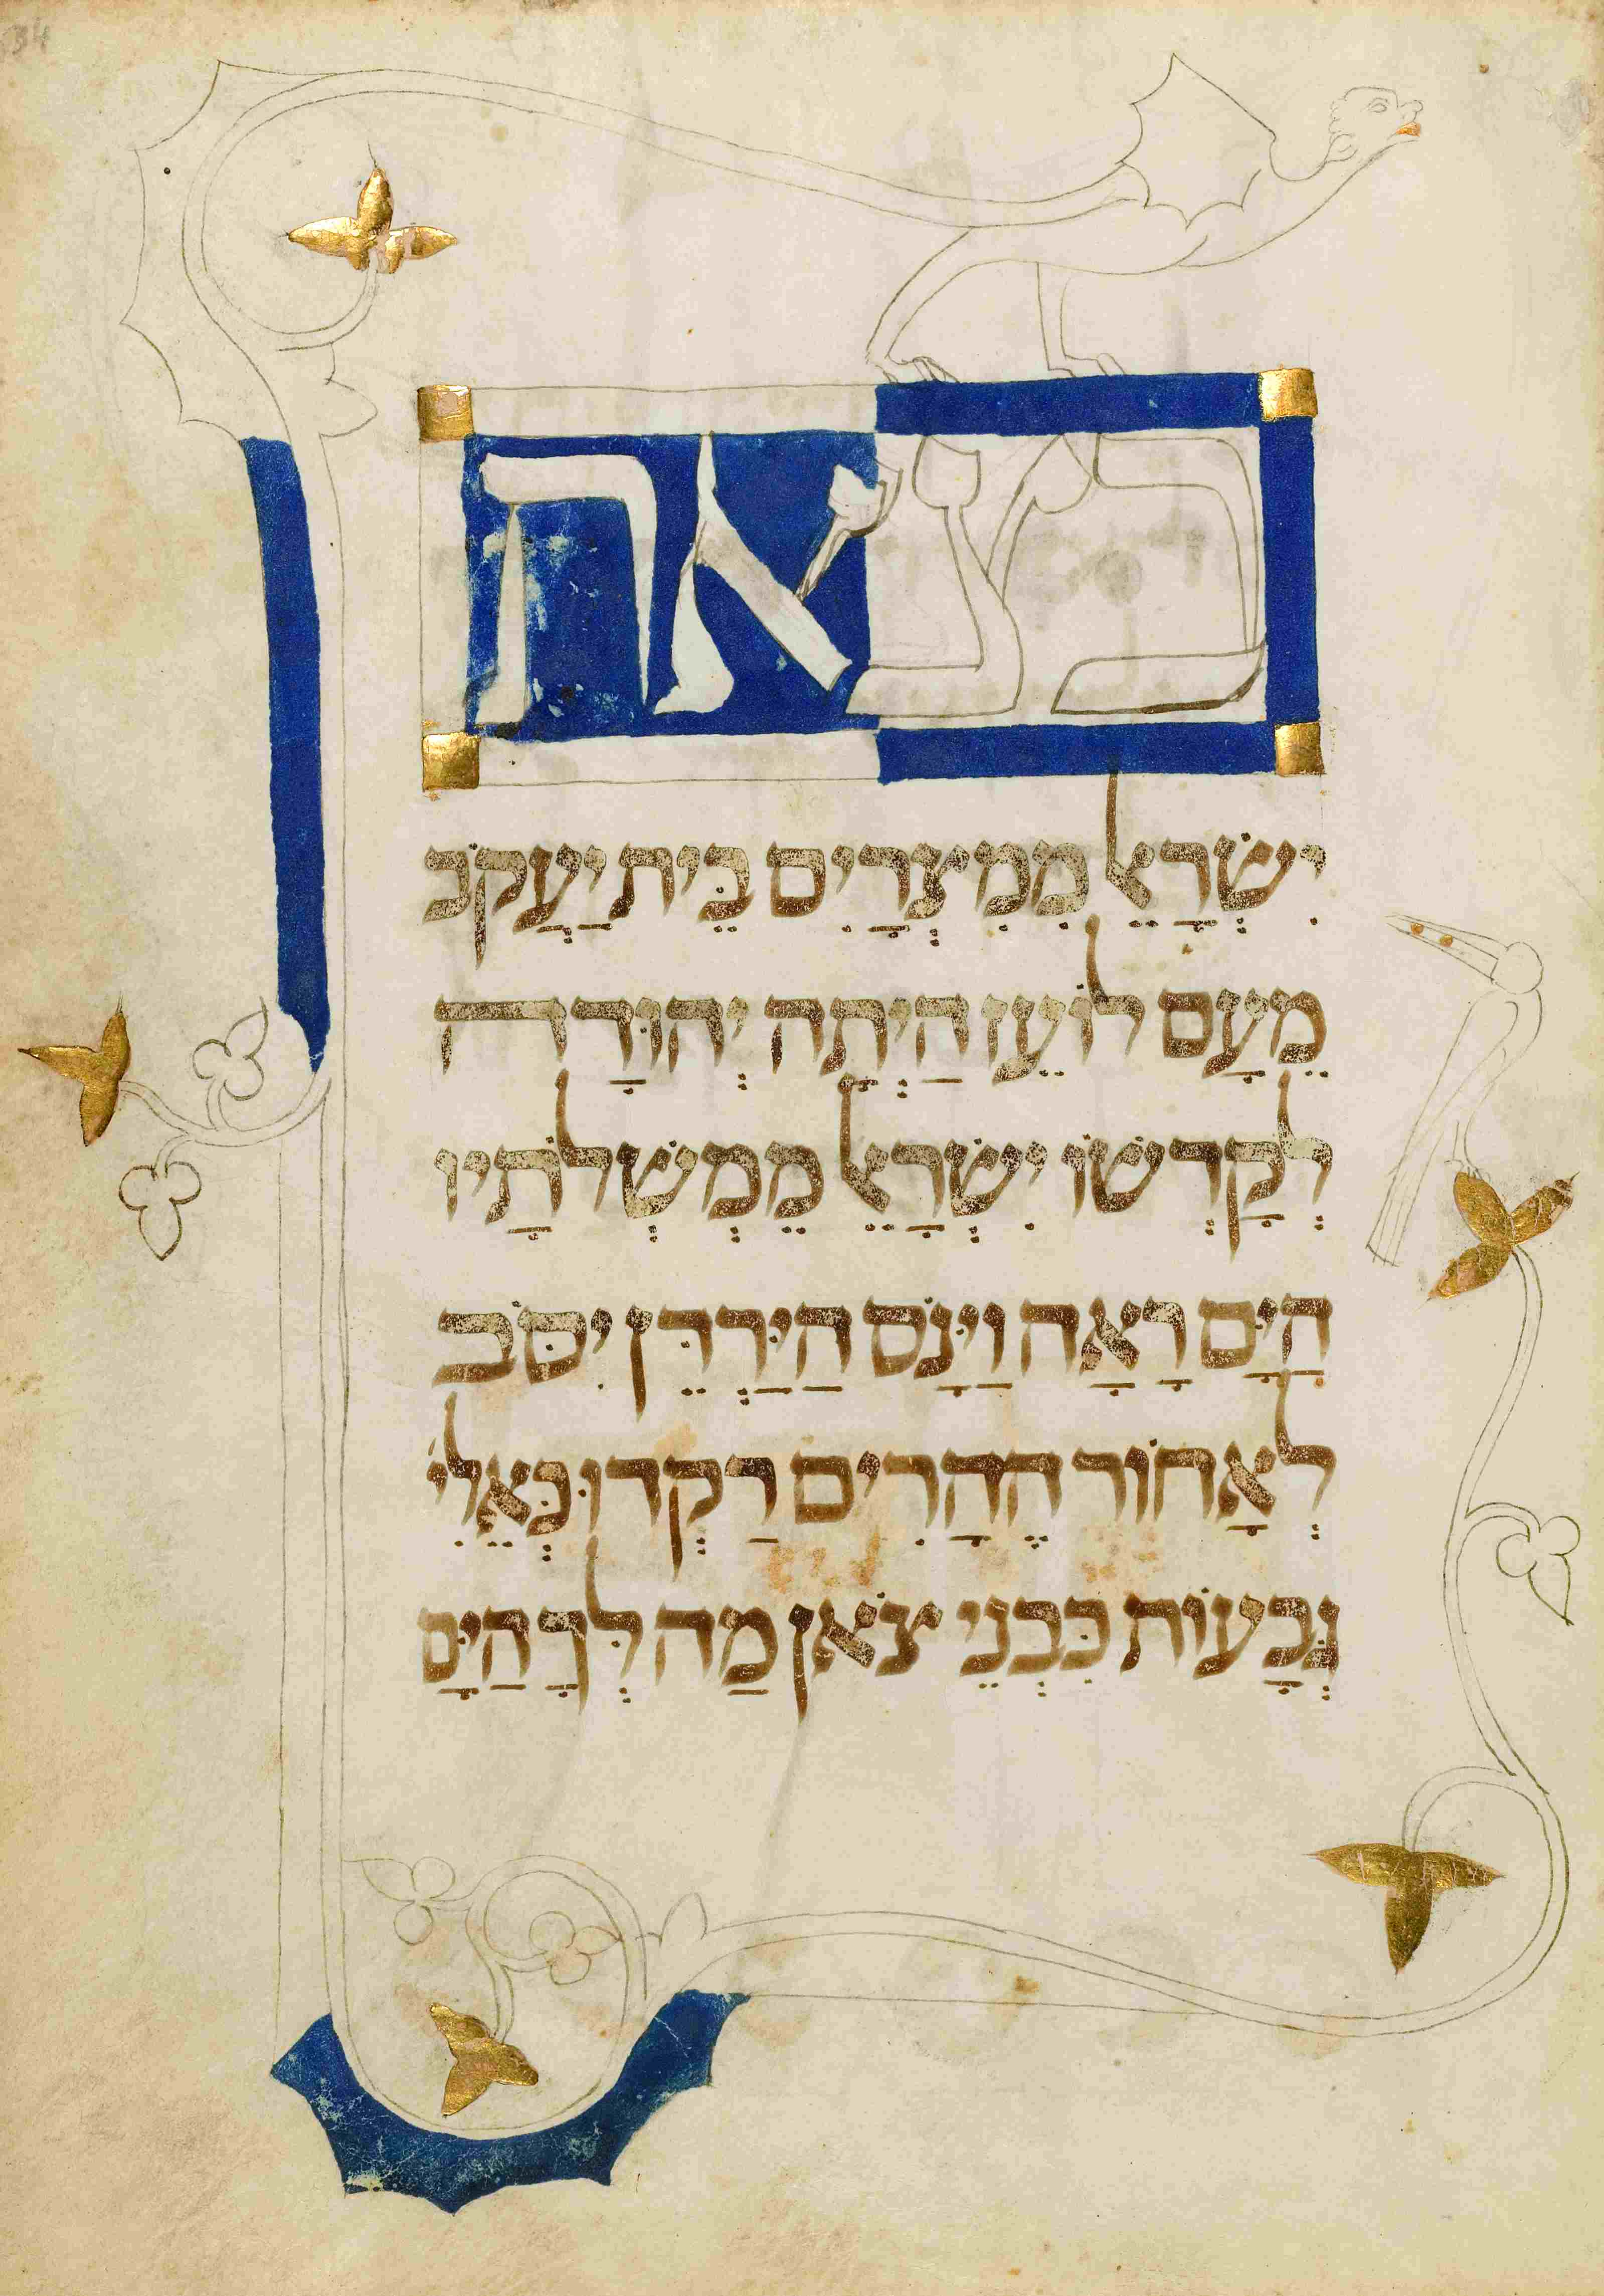 34
בצאת
יִשְׂרָאֵל מִמִּצְרָיִם בֵּית יַעֲקֹב
מֵעַם לוֹעֵז הַיְתָה יְהוּדָה
לְקָדְשׁוֹ יִשְׂרָאֵל מֵמְשְׁלֹתָיו
הַיָּם רָאָה וַיָּנֹס הַיַּרְדֵּן יִסֹּב
לְאָחוֹר הֶהָרִים רַקְדוּ כְּאֵלִי
גְּבָעוֹת כִּבְנֵי צֹאן מַה לְּךָ הַיָּם